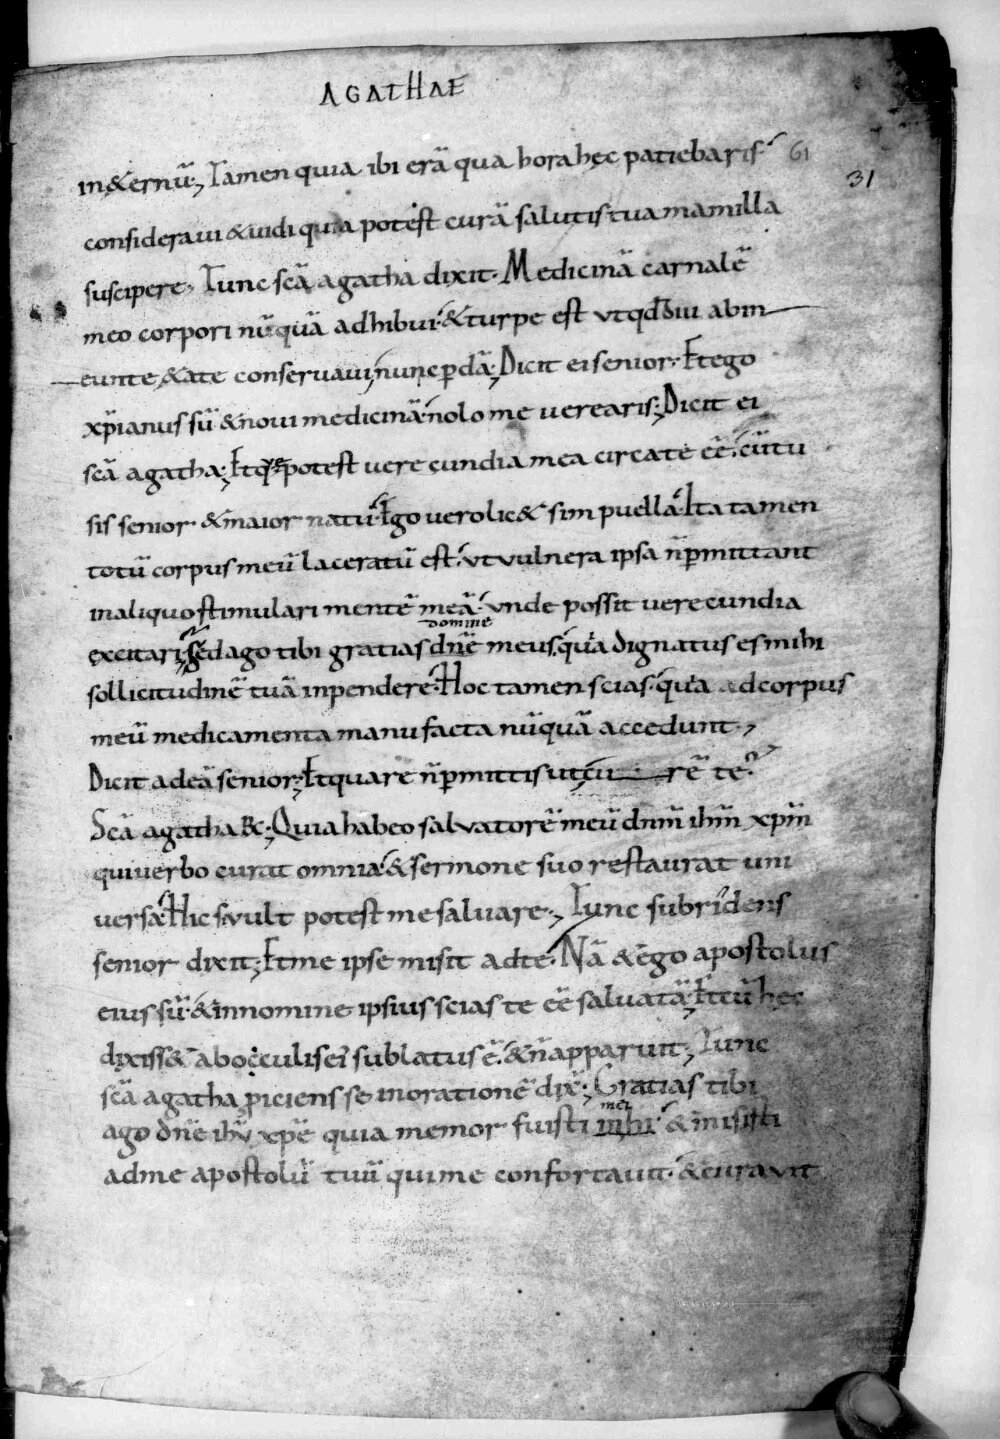 AGATHAE
in&ernū; Tamen quia ibi erā qua hora hęc patiebaris 61
31
consideraui & uidi quia potest curā salutis tua mamilla
suscipere. Tunc scā agatha dixit. Medicinā carnalē
meo corpori nūquā adhibui. & turpe est ut qd diu ab in
eunte &ate conseruaui, nunc pdā; Dicit ei senior. Et ego
xp̄ianus sū & noui medicinā nolo me verearis; Dicit ei
scā agatha; Et q̄ potest verecundia mea circa te eē. cū tu
sis senior & maior natu. Ego vero lic& sim puella. Ita tamen
totū corpus meū laceratū est. ut vulnera ipsa n̄ pmittant
in aliquo stimulari mentē meā. unde possit verecundia
domine
excitari. sed ago tibi gratias dn̄e meus. quia dignatus es mihi
sollicitudinē tuā inpendere. Hoc tamen scias. quia ad corpus
meū medicamenta manufacta nūquā accedunt.
Dicit ad eā senior; Et quare n̄ pmittis ut cu rē te.
Scā agatha R; Quia habeo saluatorē meū dnm̄ ihm̄ xpm̄
qui verbo curat omnia. & sermone suo restaurat uni
versa. Hic si vult potest me saluare. Tunc subridens
senior dixit; Et me ipse misit ad te. Nā & ego apostolus
eius sū. & in nomine ipsius scias te eē saluatā; Et cū hęc
dixiss& ab occulis ei sublatus ē. & n̄ apparuit; Tunc
scā agatha piciens se in orationē dix; Gratias tibi
mei
ago dn̄e ihū xpē quia memor fuisti mihi & misisti
ad me apostolū tuū qui me confortauit. & curavit